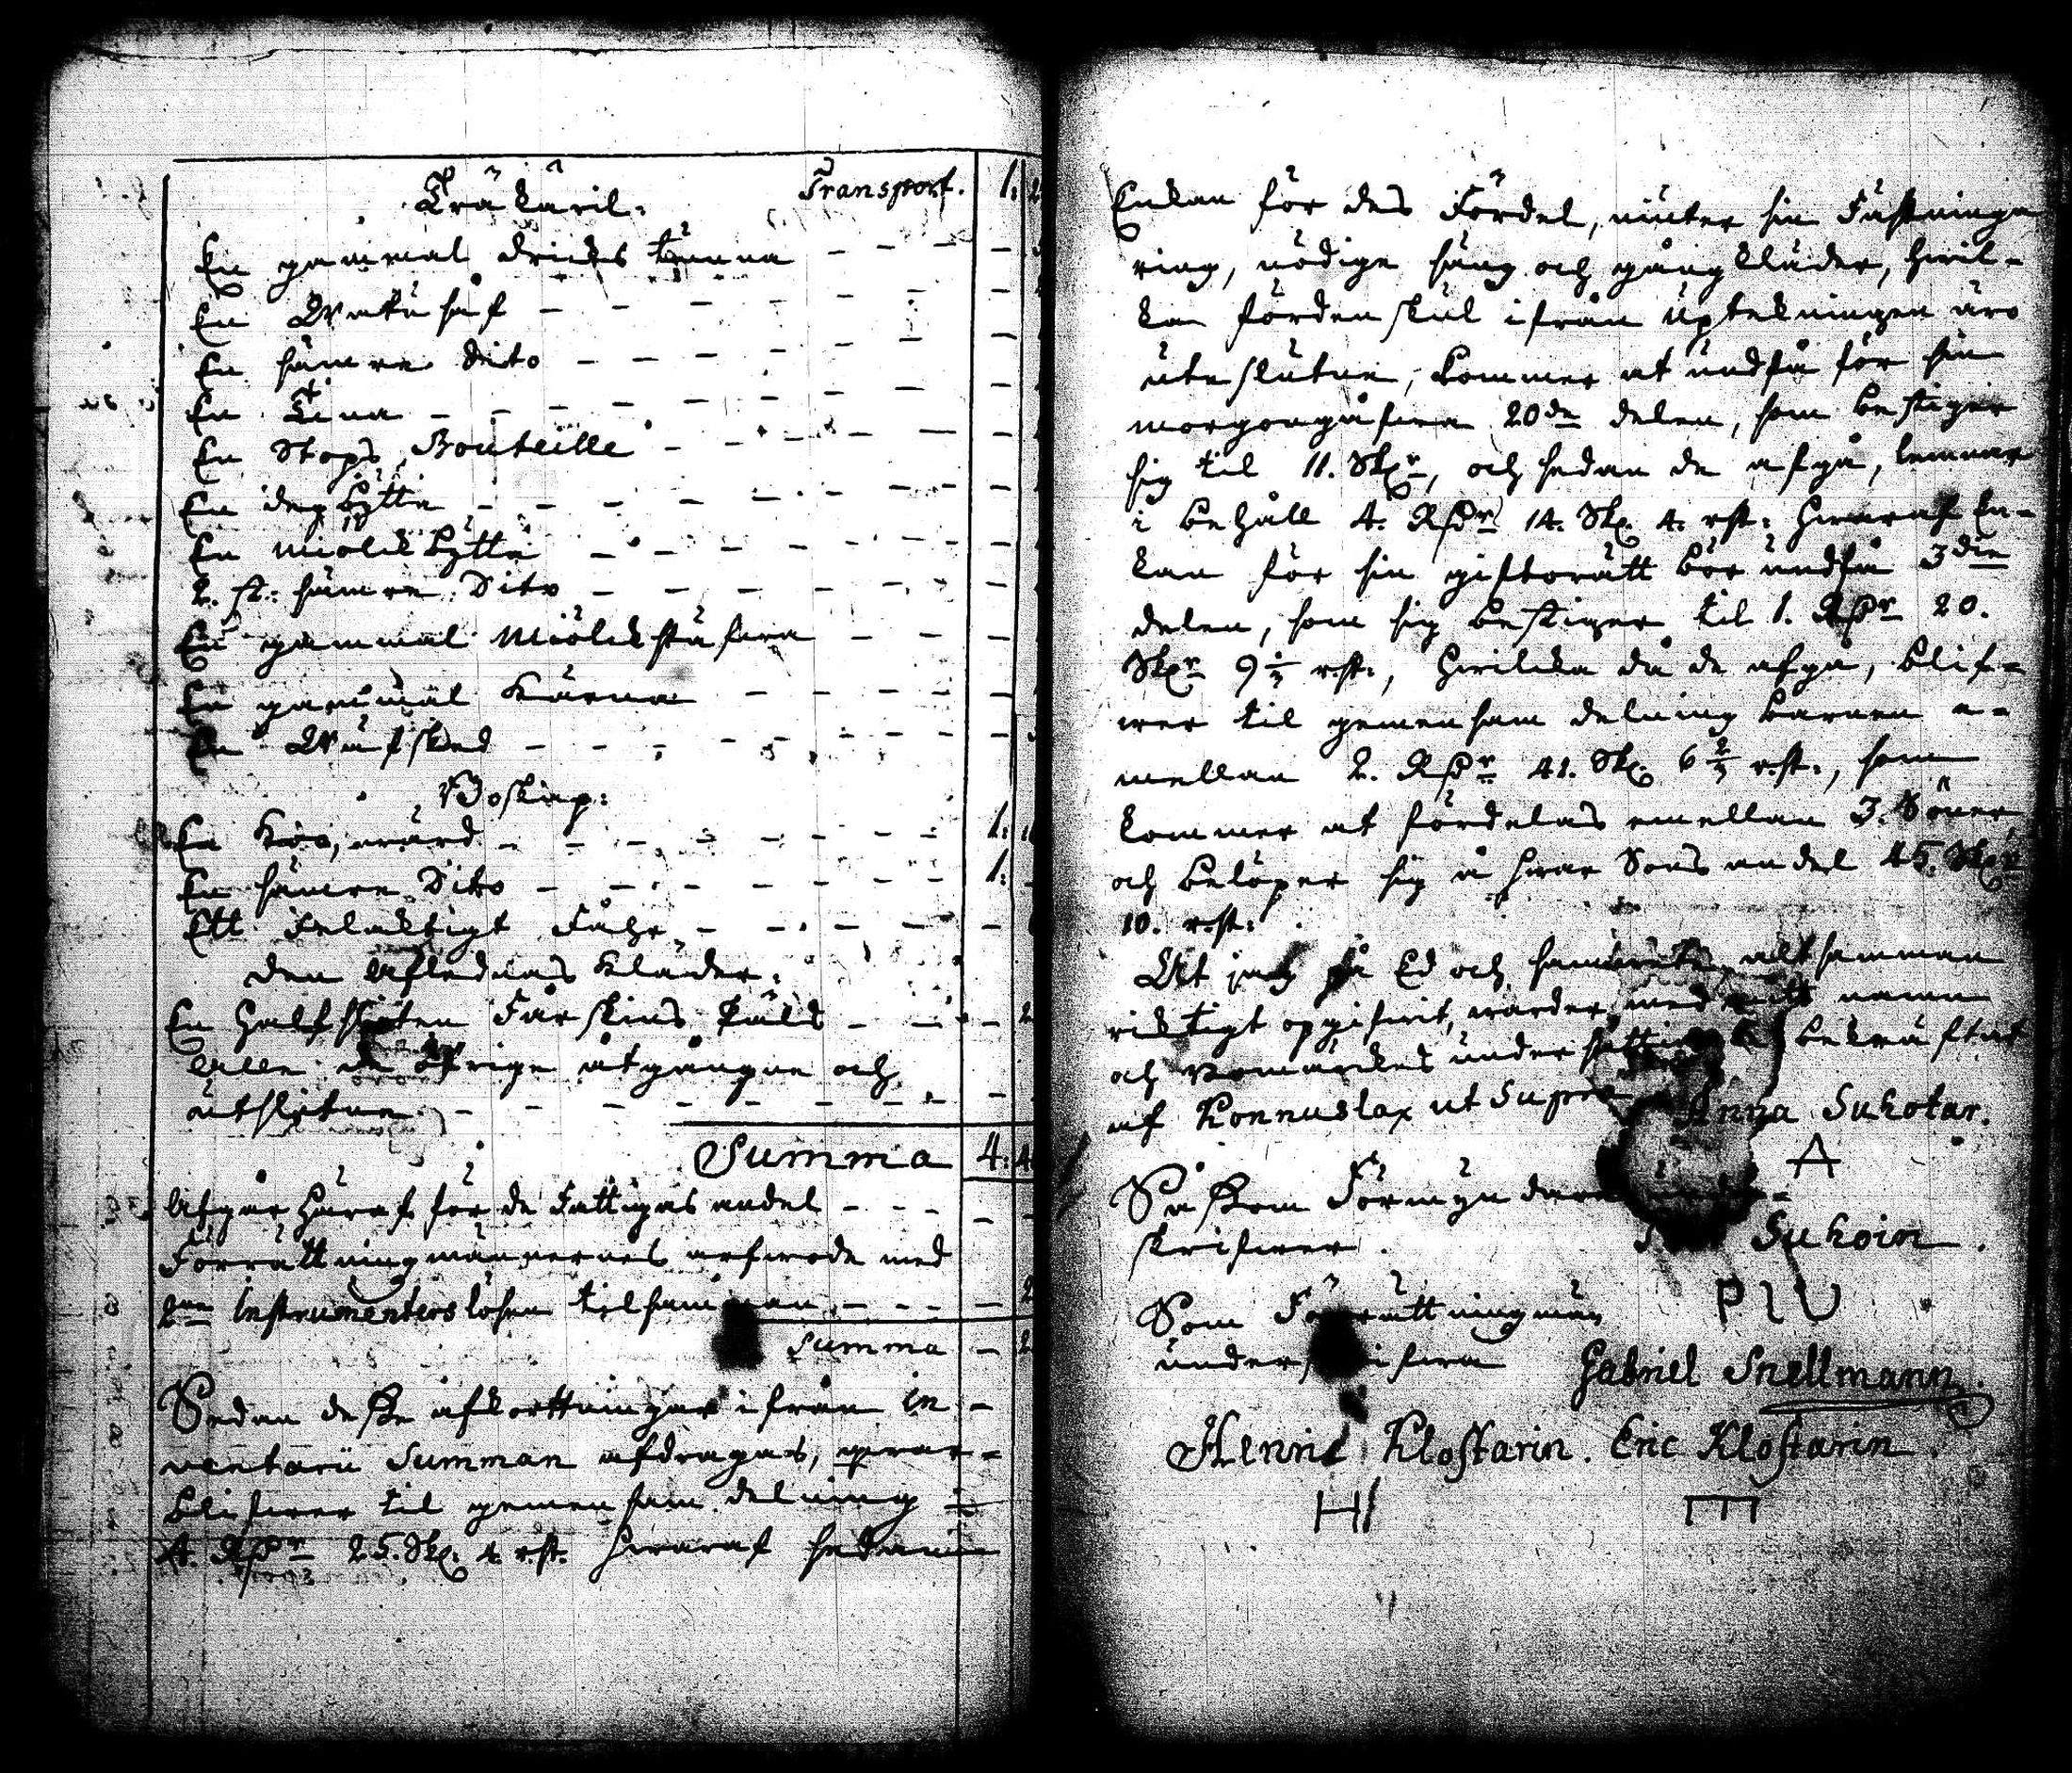 Träkäril. Transport. 1.
En gammal dricks tunna - - -
En
En sämre dito - - -
En Tina - - -
En Stops Bouteille - - -
En deg bytta - - -
En Miölck bytta - - -
2. st. sämre Dito - - -
En gammal Miölck stäfwa - - -
En gammal Kärna - - -
En - - -
Boskap:
En Koo, wärd - - - 1.
En sämre Dito - - - 1.
Ett Felacktigt Fåhr - - -
Den Aflednas Kläder.
En Halfsliten Fårskins Päls - - -
Alle de öfrige åtgångne och
utslitne - - -
Summa 4.
Afgår häraf för de Fattigas andel - - -
Förrättningmännernes arfwode med
Instrumenters lösen tilsamman - - -
Summa
Sedan desse afkorttningar ifrån in-
ventarii Summan afdragas, qwar-
blifwer til gemensam delning
4. Rdr 25. Sk. 4. rst. Hwaraf sedan
Enkan för des Fördel, niuter sin Fästninge
ring, nödige säng och gångkläder, hwil-
ka fördenskul ifrån uptekningen äro
uteslutne, kommer at undfå för sin
morgongåfwa 20de delen, som bestiger
sig til 11. Skr, och sedan de afgå, lemnar
i behåll 4. Rdr 14. Sk. 4. rst. Hwaraf En-
kan för sin giftorätt bör undfå 3die
delen, som sig bestiger til 1. Rdr 20.
Skr 9 1/3 rst., Hwilka då de afgå, blif-
wer til gemensam delning barnen e-
mellan 2. Rdr 41. Sk. 6 2/3 rst., som
kommer at fördelas emellan 3. Söner,
och belöper sig å hwar Sons andel 45. Skr
10. rst.
At jag på Ed och samwete alt samman
riktigt opgifwit, warder med mitt namn
och Bomärckes undersättiande bekräftat
af Konnuslax ut Supra Anna Suhotar.
A
Såsom Förmyndare under-
skrifwer. Suhoin.
Som Förrättningmän
underskrifwa Gabriel Snellmann.
Henric Klostarin. Eric Klostarin.